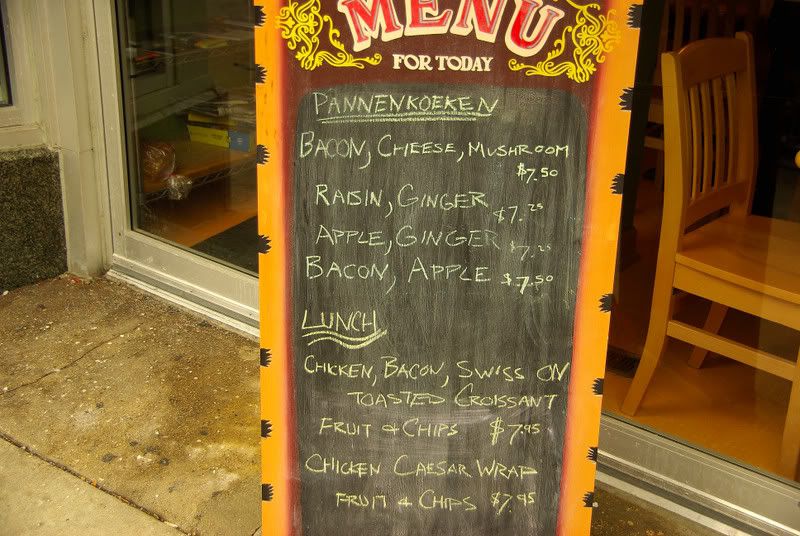 MENU
FOR TODAY
PANNENKOEKEN
BACON, CHEESE, MUSHROOM
$7.50
RAISIN, GINGER $7.25
APPLE, GINGER $7.25
BACON, APPLE $7.50
LUNCH
CHICKEN, BACON, SWISS ON
TOASTED CROISSANT
FRUIT & CHIPS $7.95
CHICKEN CAESAR WRAP
FRUIT & CHIPS $7.95